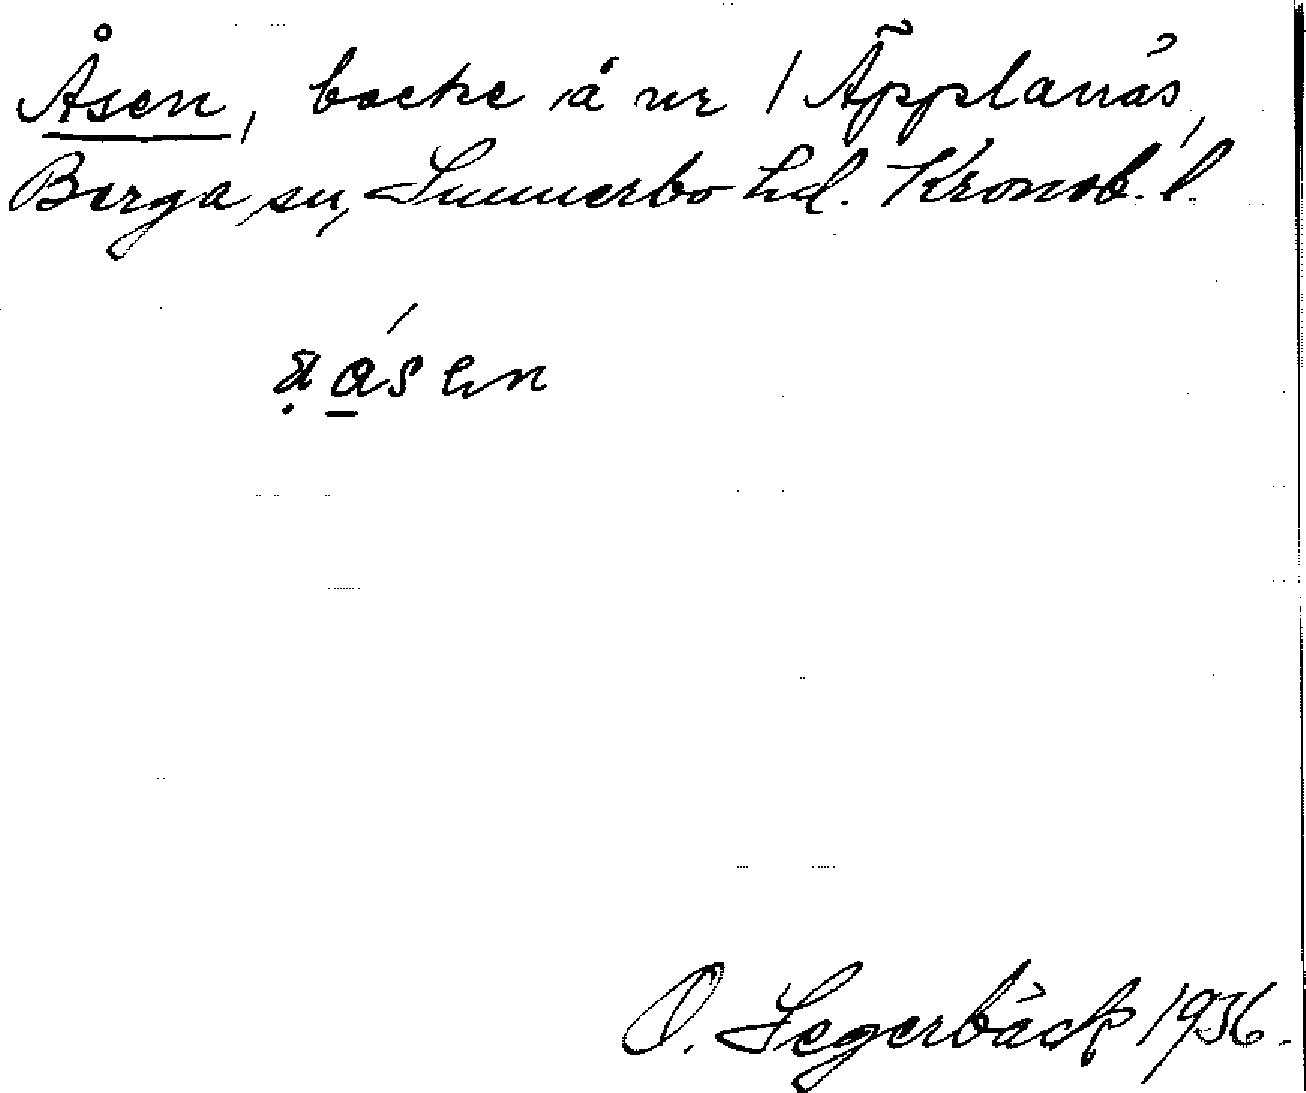 Åsen, backe å nr 1 Äpplanäs,
Berga sn, Sunnerbo hd. Kronob. l.
åsen
O. Segerbäck 1936.